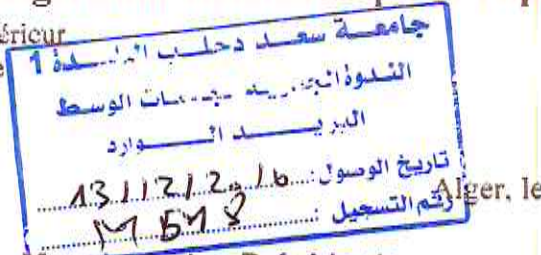 érieur
جامعة سعد دحلب البليدة 1
الندوة الجهوية لجامعات الوسط
البريد الوارد
تاريخ الوصول: 13/12/2016
رقم التسجيل:
Alger, le